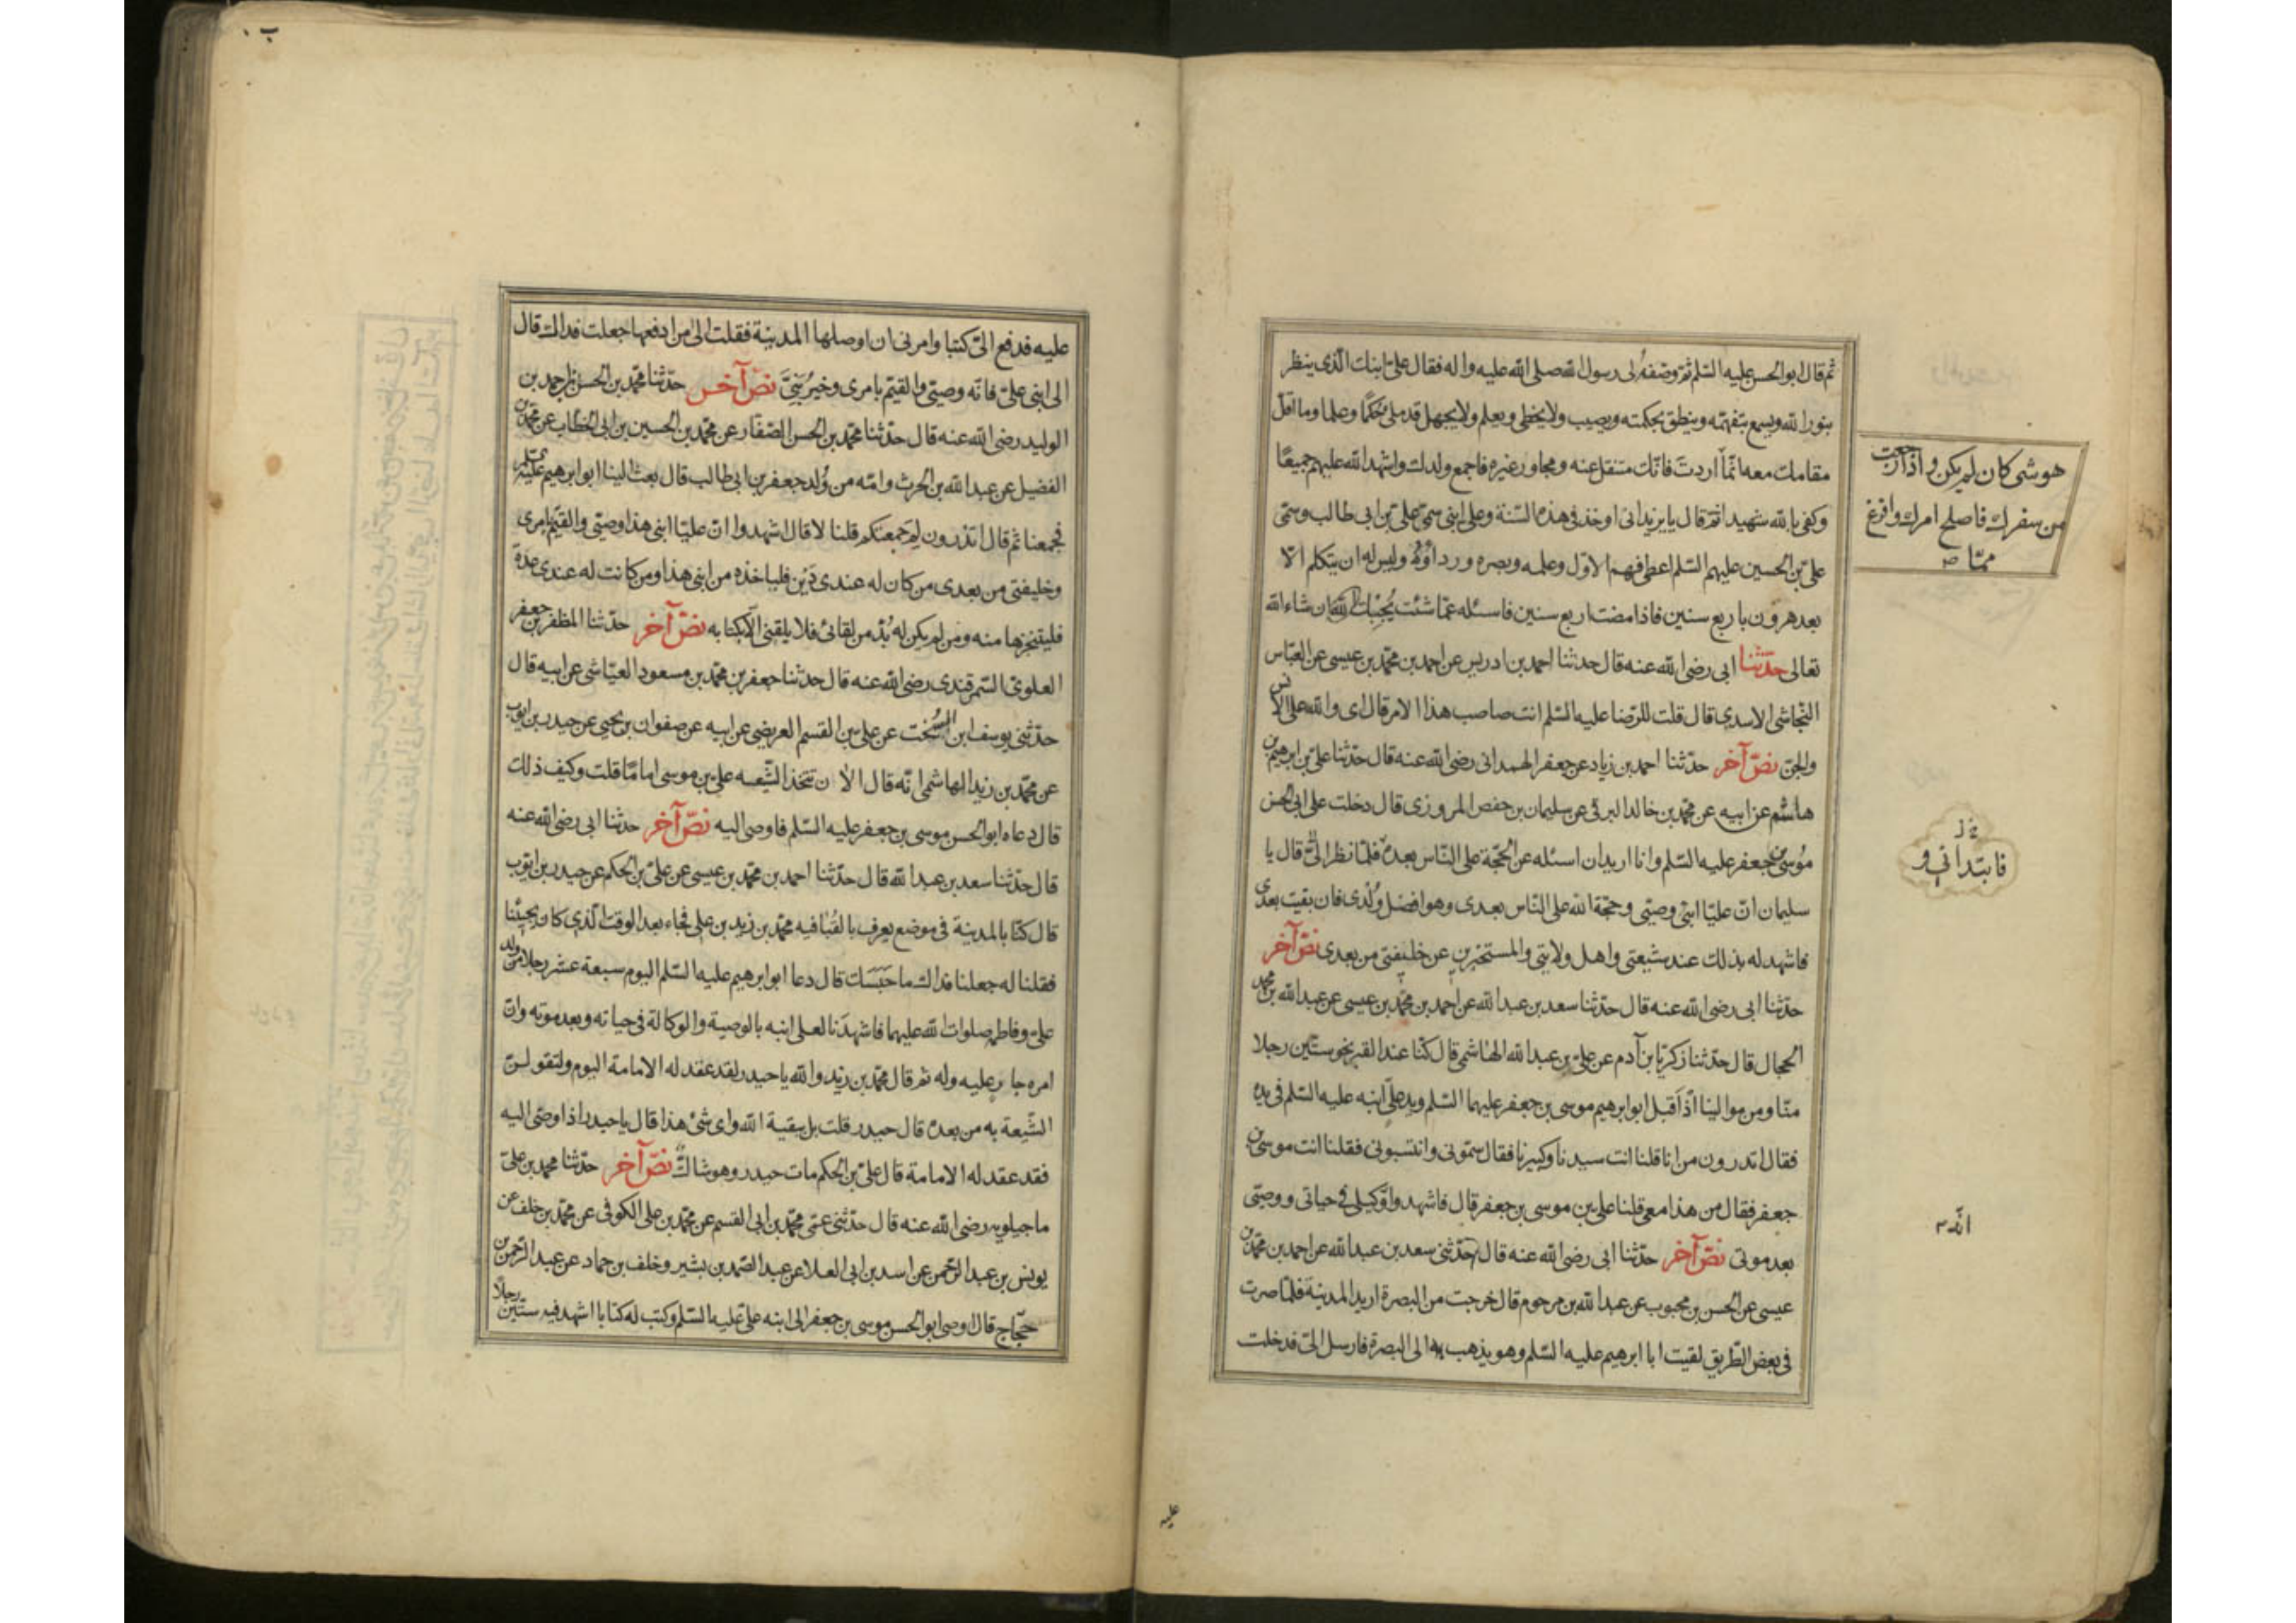 ثم قال ابوالحسن عليه السّلم ثم وصفه لى رسول الله صلى الله عليه واله فقال علىّ ابنك الّذى ينظر
بنور الله ويسمع بتفهّمه وينطق بحكمته ويصيب ولا يخطى ويعلم ولا يجهل قد ملئ حكمًا وعلما وما اقلّ
مقامك معه انّما اردتَ فانّك متنقل عنه ومجاور غيره فاجمع ولدك واشهد الله عليهم جميعًا
وكفى بالله شهيدا ثم قال يا يزيد انى اوخذ فى هذه السّنة وعلى ابنى سمىّ علىّ بن ابى طالب وسمّى
علىّ بن الحسين عليهم السّلم اعطى فهم الاوّل وعلمه وبصره ورداؤه وليس له ان يتكلم الّا
بعد هرون باربع سنين فاذا مضت اربع سنين فاسئله عمّا شئت يُجِبْكَ ان شاء الله
تعالى حدّثنا ابى رضى الله عنه قال حدثنا احمد بن ادريس عن احمد بن محمّد بن عيسى عن العبّاس
النّجاشى الاسدى قال قلت للرّضا عليه السّلم انت صاحب هذا الامر قال اى والله على الانس
والجنّ نصّ آخر حدّثنا احمد بن زياد عن جعفر الهمدانى رضى الله عنه قال حدّثنا علىّ بن ابرهيم بن
هاشم عن ابيه عن محمّد بن خالد البرقى عن سليمان بن حفص المروزى قال دخلت على ابى الحسن
مُوسى بن جعفر عليه السّلم وانا اريد ان اسئله عن الحجّة على النّاس بعده فلمّا نظر الىّ قال يا
سليمان انّ عليّا ابنى وصيّى وحجّة الله على النّاس بعدى وهو افضل وُلدى فان بقيت بعدى
فاشهد له بذلك عند شيعتى واهل ولايتى والمستخبرين عن خليفتى من بعدى نصّ آخر
حدّثنا ابى رضى الله عنه قال حدّثنا سعد بن عبد الله عن احمد بن محمّد بن عيسى عن عبد الله بن محمد
الحجال قال حدّثنا زكريّا بن آدم عن علىّ بن عبد الله الهاشمى قال كنّا عند القبر نحو ستّين رجلا
منّا ومن موالينا اذ اَقبل ابو ابرهيم موسى بن جعفر عليهما السّلم ويد علىّ ابنه عليه السّلم فى يده
فقال اتدرون من انا قلنا انت سيدنا وكبيرنا فقال سمّونى وانتسبونى فقلنا انت موسى بن
جعفر فقال من هذا معى قلنا على بن موسى بن جعفر قال فاشهدوا وكيلى فى حياتى ووصيّى
بعد موتى نصّ آخر حدّثنا ابى رضى الله عنه قال حدّثنى سعد بن عبد الله عن احمد بن محمّد بن
عيسى عن الحسن بن محبوب عن عبد الله بن مرحوم قال خرجت من البصرة اريد المدينة فلمّا صرت
فى بعض الطّريق لقيت ابا ابرهيم عليه السّلم وهو يذهب به الى البصرة فارسل الىّ فدخلت
هو شى كان لم يكن واذا رجعت
من سفرك فاصلح امرك وافرغ
ممّا
فابتدانى و
انّه
عليه
عليه فدفع الىّ كتبا وامرنى ان اوصلها المدينة فقلت الى من ادفعها جعلت فداك قال
الى ابنى علىّ فانّه وصيّى والقيّم بامرى وخيرُ بَنِيَّ نصّ آخر حدّثنا محمّد بن الحسن بن احمد بن
الوليد رضى الله عنه قال حدّثنا محمّد بن الحسن الصّفّار عن محمّد بن الحسين بن ابى الخطّاب عن محمّد بن
الفضيل عن عبد الله بن الحرث وامّه من وُلد جعفر بن ابى طالب قال بعث الينا ابو ابرهيم عليه السّلم
فجمعنا ثم قال اتدرون لم جمعتكم قلنا لا قال اشهدوا انّ عليّا ابنى هذا وصيّى والقيّم بامرى
وخليفتى من بعدى من كان له عندى دَيْن فلياخذه من ابنى هذا ومن كانت له عندى عدة
فليتنجزها منه ومن لم يكن له بُدّ من لقائى فلا يلقنى الّا بكتابه نصّ آخر حدّثنا المظفر بن جعفر
العلوىّ السّمرقندى رضى الله عنه قال حدثنا جعفر بن محمّد بن مسعود العيّاشى عن ابيه قال
حدّثنى يوسف ابن السُّخت عن على بن القسم العريضى عن ابيه عن صفوان بن يحيى عن حيدر بن ايوب
عن محمّد بن زيد الهاشمى انّه قال الان تتخذ الشّيعه علىّ بن موسى امامًا قلت وكيف ذلك
قال دعاه ابوالحسن موسى بن جعفر عليه السّلم فاوصى اليه نصّ آخر حدثنا ابى رضى الله عنه
قال حدّثنا سعد بن عبد الله قال حدّثنا احمد بن محمّد بن عيسى عن علىّ بن الحكم عن حيدر بن ايّوب
قال كنّا بالمدينة فى موضع يعرف بالقُبا فيه محمّد بن زيد بن على فجاء بعد الوقت الّذى كان يجيئنا
فقلنا له جعلنا فداك ما حَبَسَك قال دعا ابو ابرهيم عليه السّلم اليوم سبعة عشر رجلا من ولد
علىّ وفاطمه صلوات الله عليهما فاشهدَنا لعلى ابنه بالوصية والوكالة فى حياته وبعد موته وانّ
امره جايز عليه وله ثم قال محمّد بن زيد والله يا حيدر لقد عقد له الامامة اليوم ولتقولنّ
الشّيعة به من بعده قال حيدر قلت بل يبقيه الله واى شئ هذا قال يا حيدر اذا اوصى اليه
فقد عقد له الامامة قال علىّ بن الحكم مات حيدر وهو شاكّ نصّ آخر حدّثنا محمد بن علىّ
ماجيلويه رضى الله عنه قال حدّثنى عمّى محمّد بن ابى القسم عن محمّد بن على الكوفى عن محمّد بن خلف عن
يونس بن عبد الرّحمن عن اسد بن ابى العلا عن عبد الصّمد بن بشير وخلف بن حماد عن عبد الرّحمن بن
حجّاج قال اوصى ابوالحسن موسى بن جعفر الى ابنه علىّ عليه السّلم وكتب له كتابا اشهد فيه ستّين رجلًا